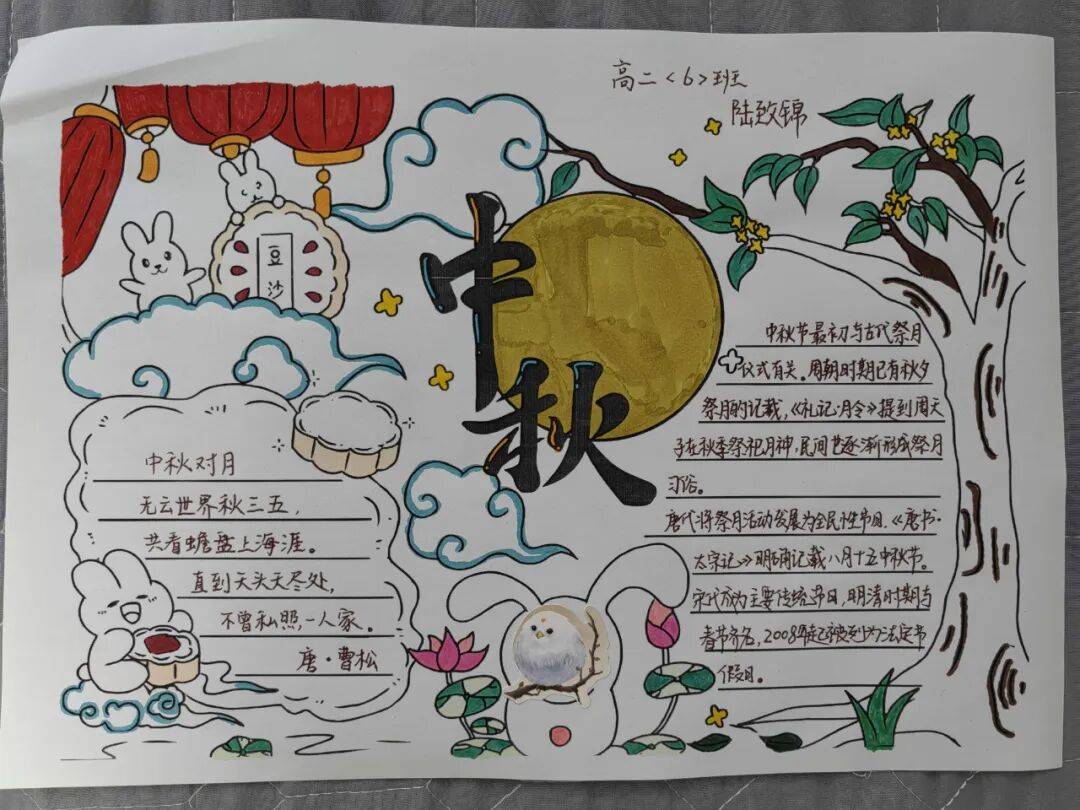 高二<6>班
陆致锦
豆沙
中秋
中秋对月
无云世界秋三五，
共看蟾盘上海涯。
直到天头天尽处，
不曾私照一人家。
唐·曹松
中秋节最初与古代祭月
仪式有关。周朝时期已有秋夕
祭月的记载，《礼记·月令》提到周天
子在秋季祭祀月神，民间也逐渐形成祭月
习俗。
唐代将祭月活动发展为全民性节日，《唐书·
太宗记》明确记载八月十五中秋节。
宋代成为主要传统节日，明清时期与
春节齐名，2008年起被列为法定节
假日。